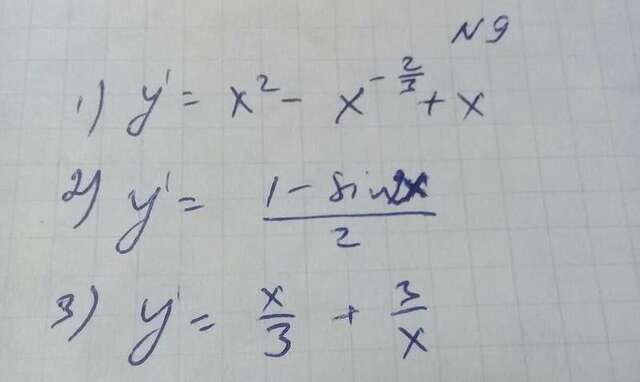 N 9
1) y' = x² - x^(-2/3) + x
2) y' = (1 - sin2x)/2
3) y' = x/3 + 3/x